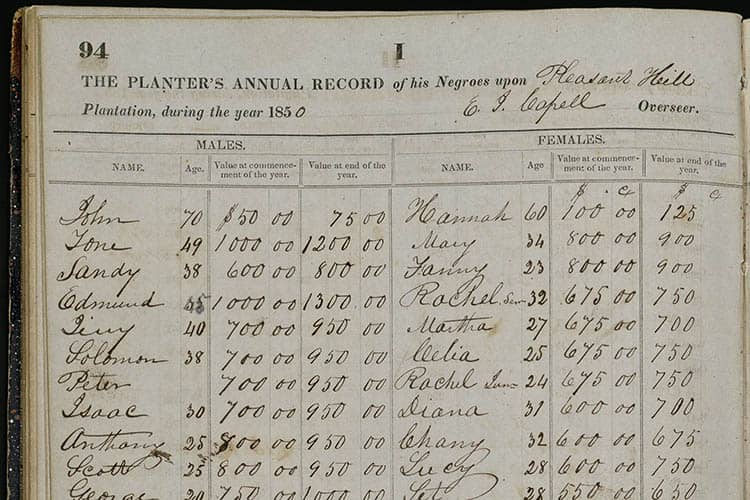 94 I
THE PLANTER'S ANNUAL RECORD of his Negroes upon Pleasant Hill
Plantation, during the year 1850 E. J. Capell Overseer.
MALES. FEMALES.
NAME. Age. Value at commence-ment of the year. Value at end of the year. NAME. Age Value at commence-ment of the year. Value at end of the year.
$ c $ c
John 70 $50 00 75 00 Hannah 60 100 00 125
Tone 49 1000 00 1200 00 Mary 34 800 00 900
Sandy 38 600 00 800 00 Fanny 23 800 00 900
Edmund 45 1000 00 1300 00 Rachel Sen 32 675 00 750
40 700 00 950 00 Martha 27 675 00 700
Solomon 38 700 00 950 00 Celia 25 675 00 750
Peter 700 00 950 00 Rachel Jun 24 675 00 750
Isaac 30 700 00 950 00 Diana 31 600 00 700
Anthony 25 800 00 950 00 Chany 32 600 00 675
Scott 25 800 00 950 00 Lucy 28 600 00 750
George 20 750 1000 00 28 550 00 650